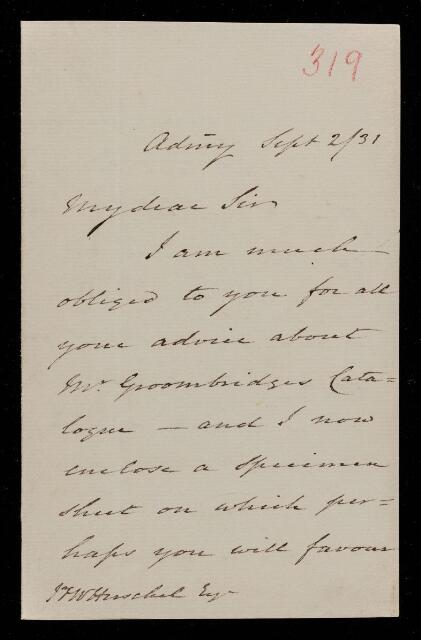 319
Admy Sept 2/31
My dear Sir
I am much
obliged to you for all
your advice about
Mr. Groombridges Cata=
logue — and I now
enclose a specimen
sheet on which per=
haps you will favour
J F W Herschel Esqr